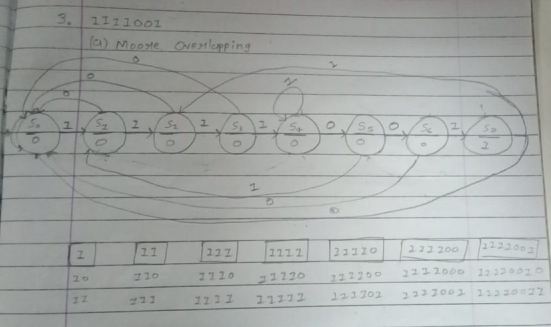 3. 1111001
(a) Moore Overlapping
0
0
0
1
1
S0/0 1 S1/0 1 S2/0 1 S3/0 1 S4/0 0 S5/0 0 S6/0 1 S7/1
1
0
0
1 11 111 1111 11110 111100 1111001
10 110 1110 11110 111100 1111000 11110010
11 111 1111 11111 111101 1111001 11110011